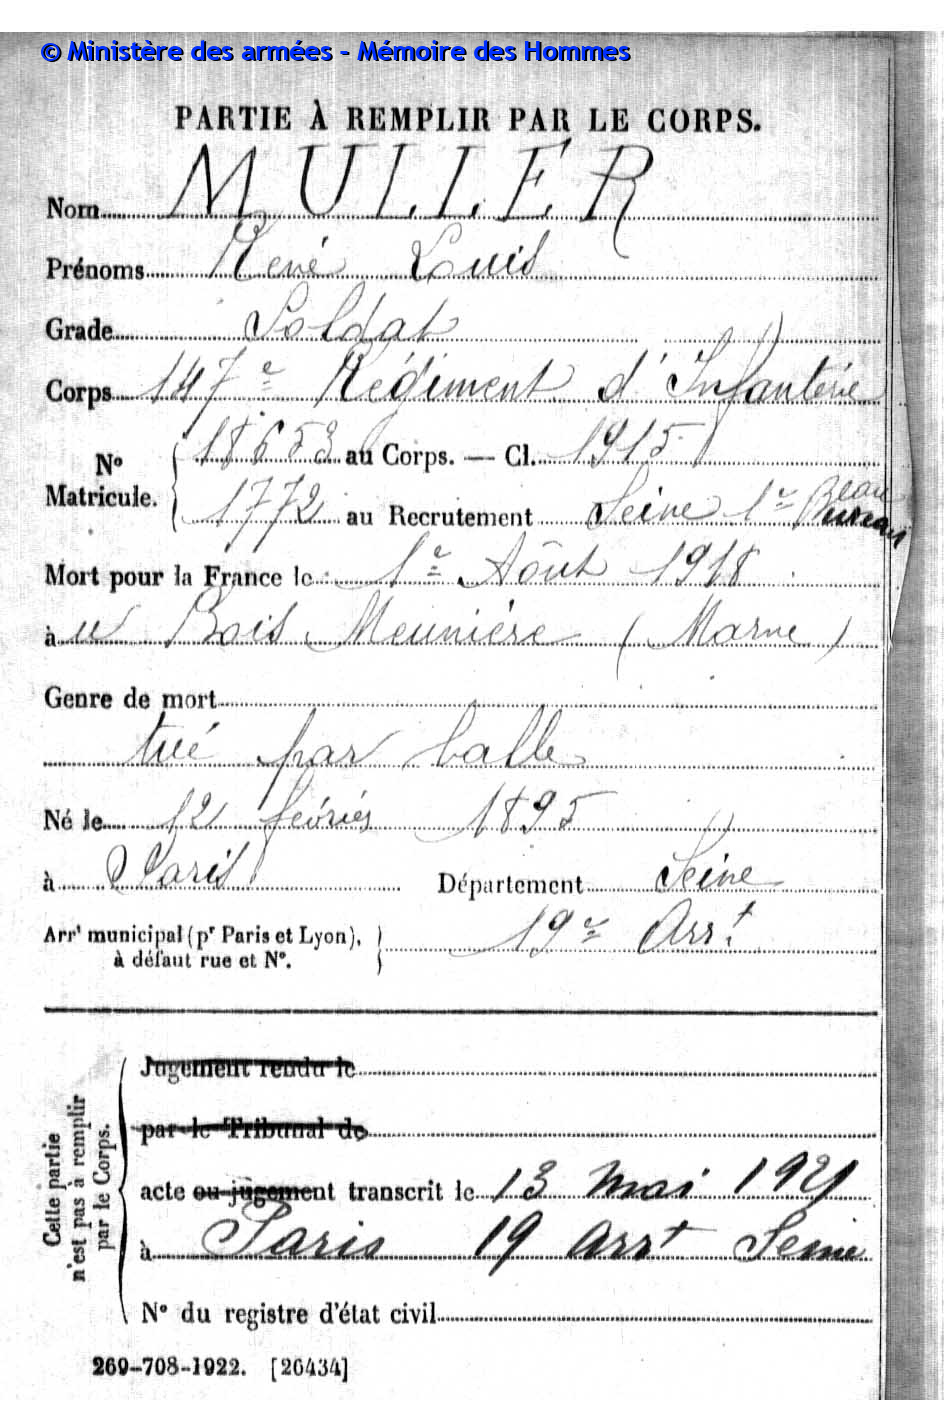 © Ministère des armées - Mémoire des Hommes
PARTIE À REMPLIR PAR LE CORPS.
Nom MULLER
Prénoms René Louis
Grade Soldat
Corps 147e Régiment d'Infanterie
N° Matricule. 18653 au Corps. — Cl. 1915
1772 au Recrutement Seine 1er Bureau
Mort pour la France le 1er Août 1918
à Bois Meunière (Marne)
Genre de mort
tué par balle
Né le 12 février 1895
à Paris Département Seine
Arrt municipal (pr Paris et Lyon), 19e Arrt
à défaut rue et N°.
Cette partie n'est pas à remplir par le Corps.
Jugement rendu le
par le Tribunal de
acte ou jugement transcrit le 13 mai 1921
à Paris 19 arrt Seine
N° du registre d'état civil
269-708-1922. [26434]